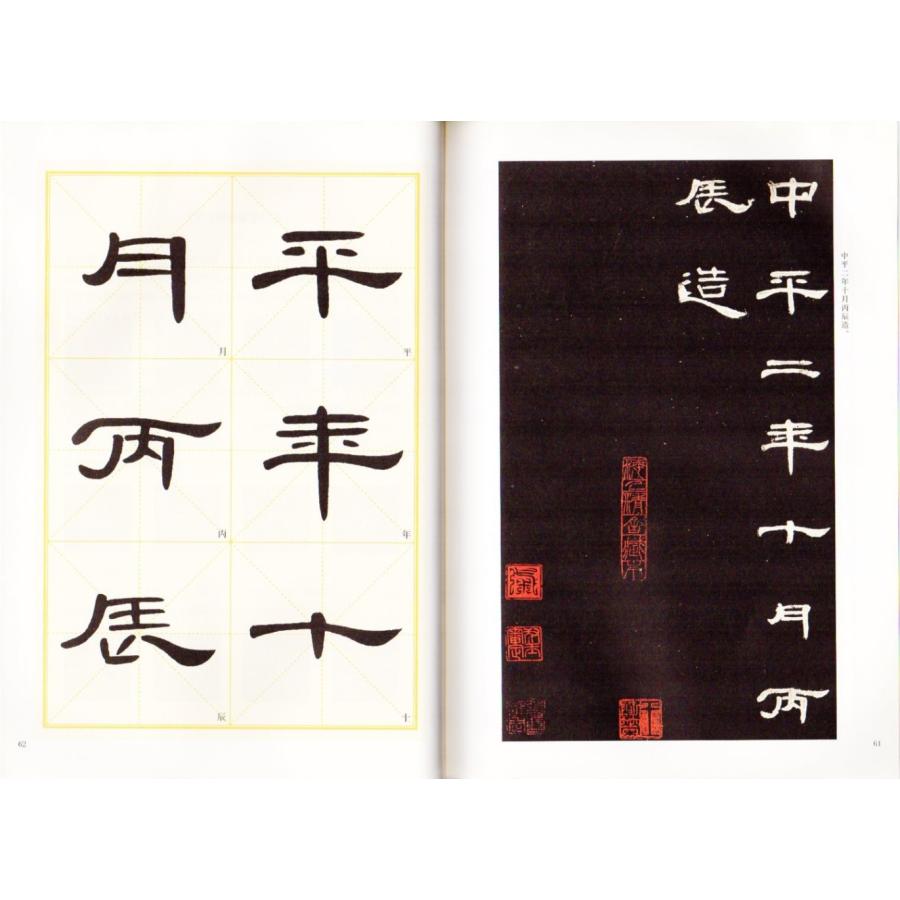 中平二年十月丙辰造。
中平二年十月丙
辰造
61
平年十
平
年
十
月丙辰
月
丙
辰
62